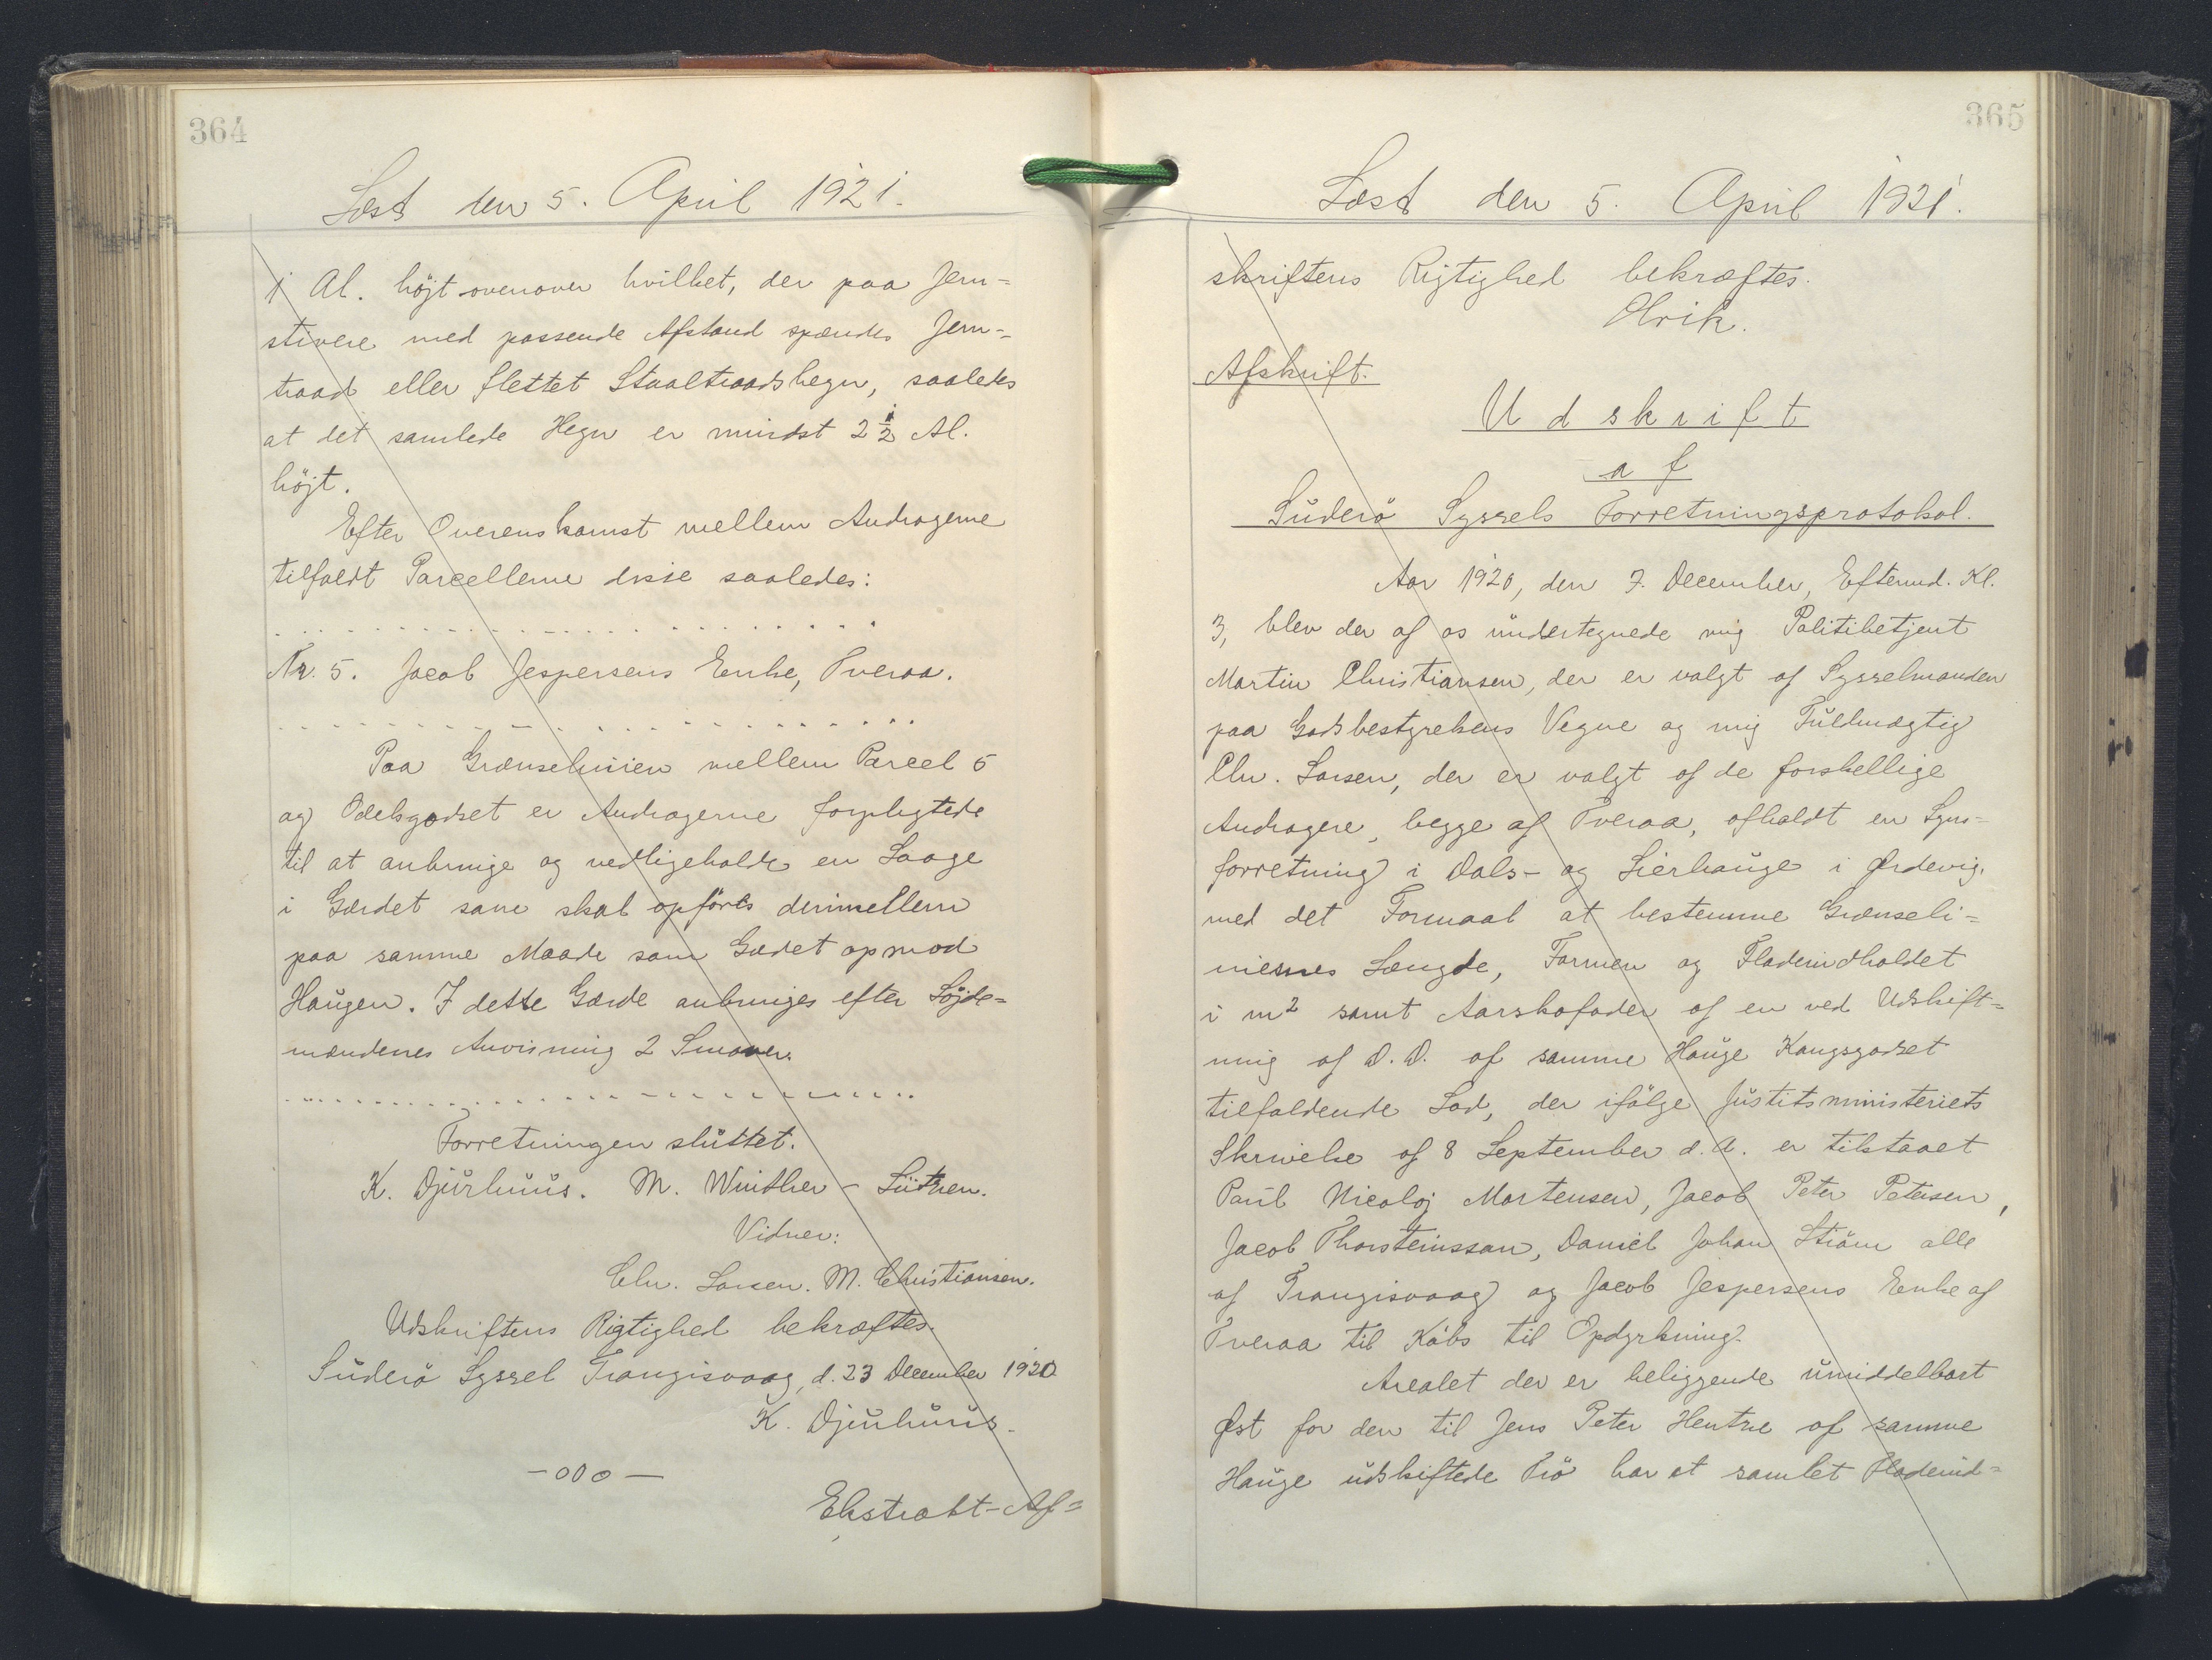 364
Læst den 5. April 1921.
1 Al. höjt ovenover hvilket, der paa Jern-
stivere med passende Afstand spændes Jern-
traad eller flettet Staaltraadshegn, saaledes
at det samlede Hegn er mindst 2 1/2 Al.
höjt.
Efter Overenskomst mellem Andragerne
tilfaldt Parcellerne disse saaledes:
Nr. 5. Jacob Jespersens Enke, Tveraa.
Paa Grænselinien mellem Parcel 5
og Odelsgodset er Andragerne forpligtede
til at anbringe og vedligeholde en Laage
i Gærdet som skal opföres derimellem
paa samme Maade som Gædet op mod
Haugen. I dette Gærde anbringes efter Löjde-
mændenes Anvisning 2 Smover.
Forretningen sluttet.
K. Djurhuus. M. Winther - Lützen.
Vidner:
Chr. Larsen. M. Christiansen.
Udskriftens Rigtighed bekræftes.
Suderö Syssel Trangisvaag, d. 23 December 1920
K. Djurhuus.
-000-
Ekstrakt-Af=
365
Læst den 5. April 1921.
skriftens Rigtighed bekræftes.
Olrik.
Afskrift.
Udskrift
af
Suderö Syssels Forretningsprotokol.
Aar 1920, den 7. December, Eftermd. Kl.
3, blev der af os undertegnede mig Politibetjent
Martin Christiansen, der er valgt af Sysselmanden
paa Godsbestyrelsens Vegne og mig Fuldmægtig
Chr. Larsen, der er valgt af de forskellige
Andragere, begge af Tveraa, afholdt en Syns-
forretning i Dals- og Lierhauge i Ørdevig.
med det Formaal at bestemme Grænseli=
niernes Længde, Formen og Fladeindholdet
i m2 samt Aarskofoder af en ved Udskift=
ning af D. D. af samme Hauge Kongsgodset
tilfaldende Lod, der ifölge Justitsministeriets
Skrivelse af 8 September d. A. er tilstaaet
Paul Nicolaj Mortensen, Jacob Peter Petersen,
Jacob Thorsteinsson, Daniel Johan Ström alle
af Trangisvaag og Jacob Jespersens Enke af
Tveraa til Köbs til Opdyrkning.
Arealet der er beliggende umiddelbart
Øst for den til Jens Peter Hentze af samme
Hauge udskiftede Trö har et samlet Fladeind=